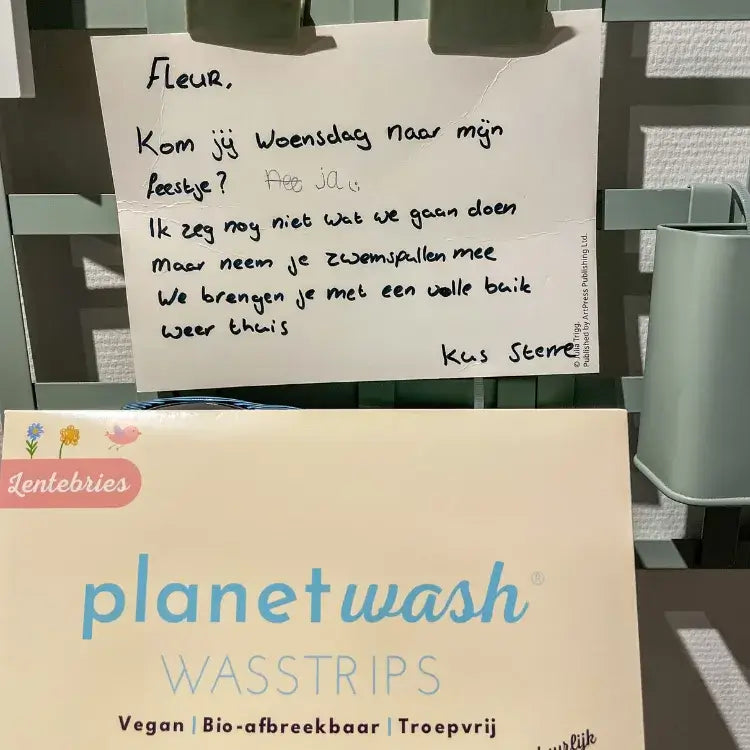 Fleur,
Kom jij woensdag naar mijn
feestje? Nee ja
Ik zeg nog niet wat we gaan doen
Maar neem je zwemspullen mee
We brengen je met een volle buik
weer thuis
Kus Sterre
© Julia Trigg.
Published by ArtPress Publishing Ltd.
Lentebries
planetwash®
WASSTRIPS
Vegan | Bio-afbreekbaar | Troepvrij